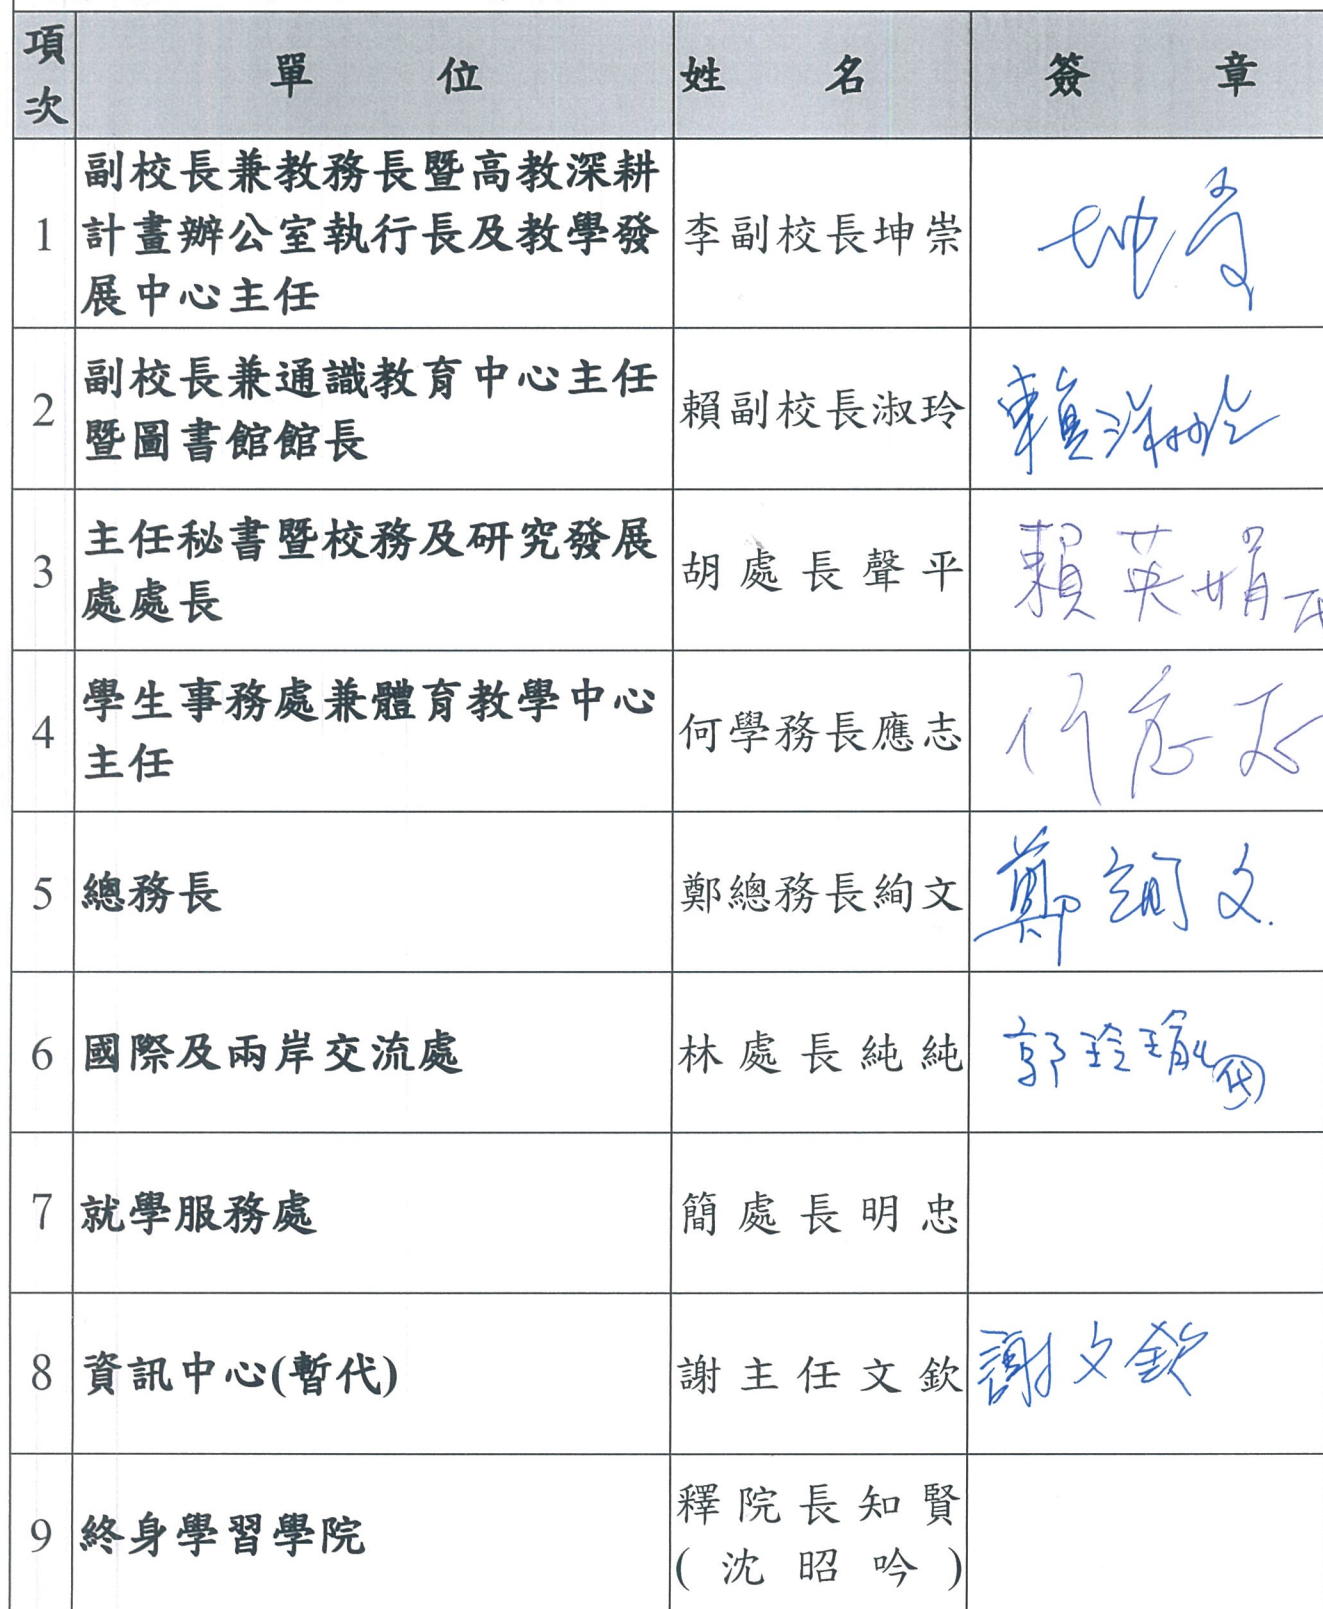 項次 單位 姓名 簽章
1 副校長兼教務長暨高教深耕
計畫辦公室執行長及教學發
展中心主任 李副校長坤崇 坤崇
2 副校長兼通識教育中心主任
暨圖書館館長 賴副校長淑玲 賴淑玲
3 主任秘書暨校務及研究發展
處處長 胡處長聲平 賴英娟代
4 學生事務處兼體育教學中心
主任 何學務長應志 何應志
5 總務長 鄭總務長絢文 鄭絢文
6 國際及兩岸交流處 林處長純純 郭玲瑜代
7 就學服務處 簡處長明忠
8 資訊中心(暫代) 謝主任文欽 謝文欽
9 終身學習學院 釋院長知賢
(沈昭吟)